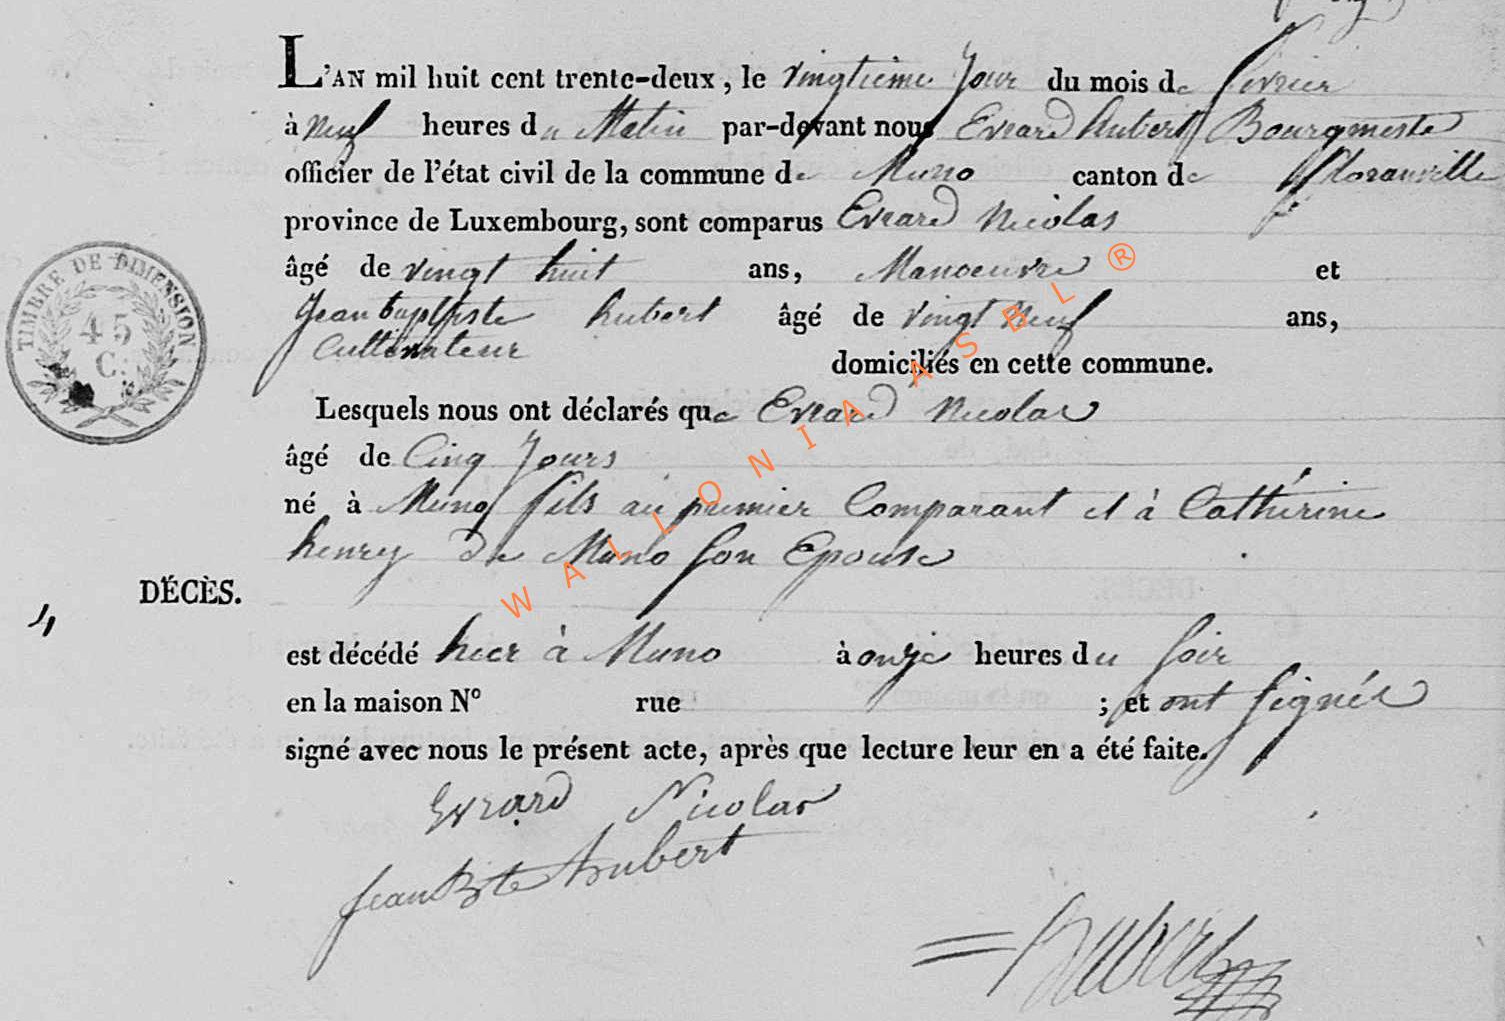 L'AN mil huit cent trente-deux, le vingtieme Jour du mois de fevrier
à Neuf heures du Matin par-devant nous Evrard hubert Bourgmestre
officier de l'état civil de la commune de Muno canton de floranville
province de Luxembourg, sont comparus Evrard Nicolas
âgé de vingt huit ans, Manoeuvre et
Jean baptiste hubert âgé de vingt Neuf ans,
Cultivateur domiciliés en cette commune.
Lesquels nous ont déclarés que Evrard Nicolas
âgé de Cinq Jours
né à Muno fils au premier Comparant et à Cathérine
henry de Muno son Epouse
DÉCÈS.
4
est décédé hier à Muno à onze heures du soir
en la maison N° rue ; et ont signés
signé avec nous le présent acte, après que lecture leur en a été faite.
Evrard Nicolas
Jean Bte hubert
hubert
TIMBRE DE DIMENSION
45
C.
WALLONIA ASBL ®